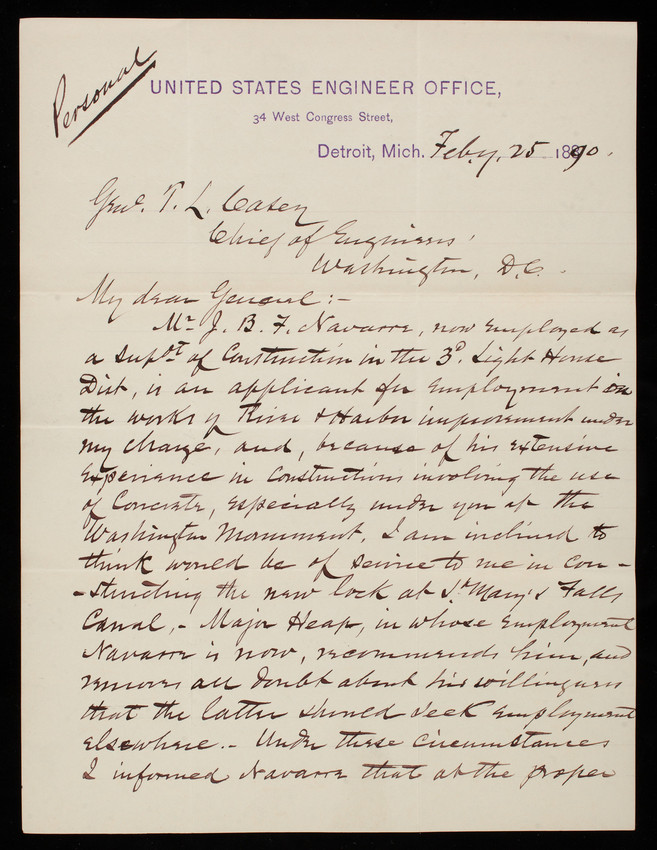 Personal
UNITED STATES ENGINEER OFFICE,
34 West Congress Street,
Detroit, Mich. Feby. 25 1890.
Genl. T. L. Casey
Chief of Engineers,
Washington, D.C.
My dear General:-
Mr. J. B. F. Navarre, now employed as
a Supdt of Construction in the 3d. Light House
Dist, is an applicant for employment on
the works of River & Harbor improvement under
my charge, and, because of his extensive
experience in constructions involving the use
of Concrete, especially under you at the
Washington Monument, I am inclined to
think would be of service to me in con-
-structing the new lock at St. Mary's Falls
Canal,- Major Heap, in whose employment
Navarre is now, recommends him, and
removes all doubt about his willingness
that the latter should seek employment
elsewhere.- Under these circumstances
I informed Navarre that at the proper